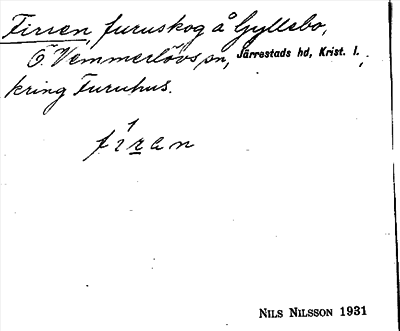 Firren, furuskog å Gyllebo,
Ö. Vemmerlövs sn, Järrestads hd, Krist. l.,
kring Furuhus.
fíran
NILS NILSSON 1931